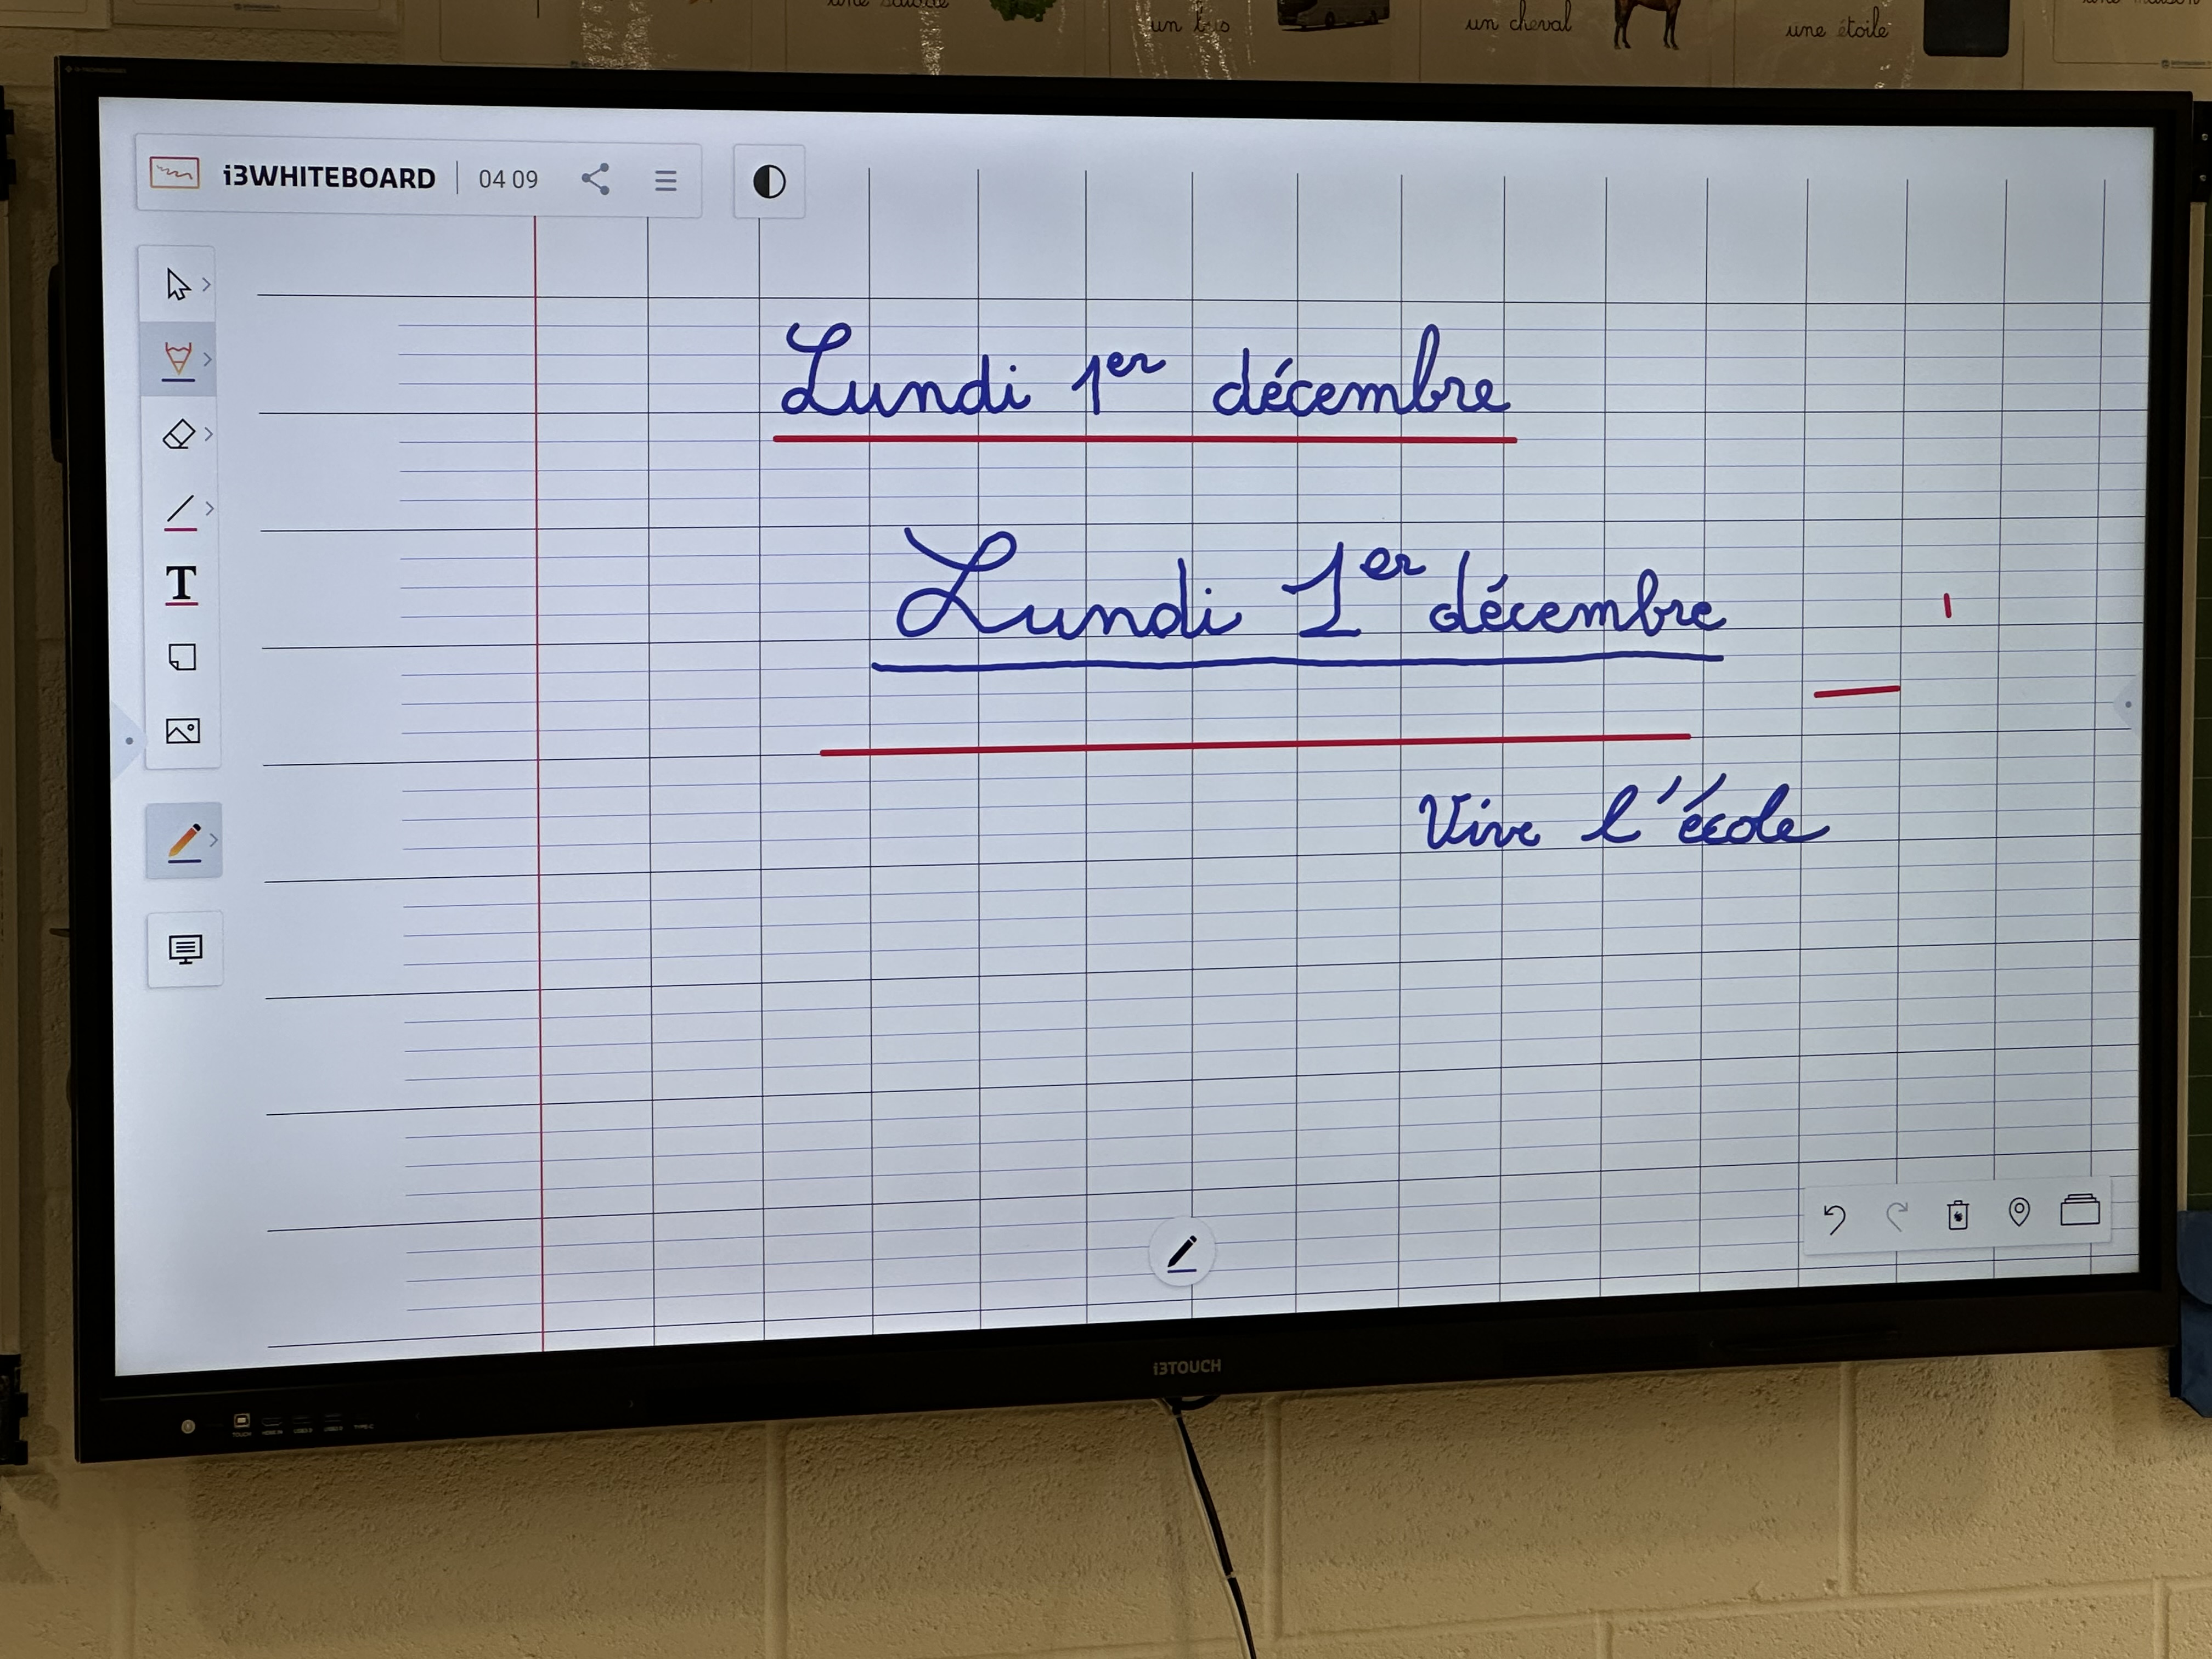 un cheval
une étoile
i3WHITEBOARD 04 09
Lundi 1er décembre
Lundi 1er décembre
Vive l'école
T
i3TOUCH
TOUCH